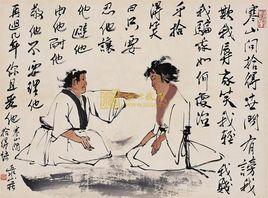 寒山问拾得世间有谤我
欺我辱我笑我轻我贱
我骗我如何处治
乎拾
得笑
曰只要
忍他让
他避他
由他耐
他敬他不要理他
再过几年你且看他
寒山问
拾得语